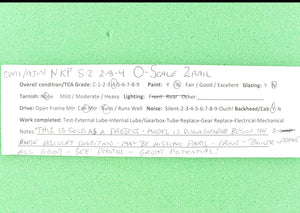 OMI/ATIN NKP S-2 2-8-4 O-SCALE 2RAIL
Overall condition/TCA Grade: C-1-2-3-4-5-6-7-8-9-10 Paint: Y N Fair / Good / Excellent Glazing: Y N
Tarnish: None / Mild / Moderate / Heavy Lighting: Front Rear Other
Drive: Open Frame Mtr Can Mtr Runs / Runs Well Noise: Silent-1-2-3-4-5-6-7-8-9-Ouch! Backhead/Cab: Y N
Work completed: Test-External Lube-Internal Lube/Gearbox-Tube Replace-Gear Replace-Electrical-Mechanical
Notes: THIS IS SOLD AS A PROJECT - MODEL IS DISASSEMBLED BEYOND THE
CONDITION - MAY BE MISSING PARTS - DRIVE - BOILER - FRAME
ALL GOOD - SEE PHOTOS - GREAT POTENTIAL!